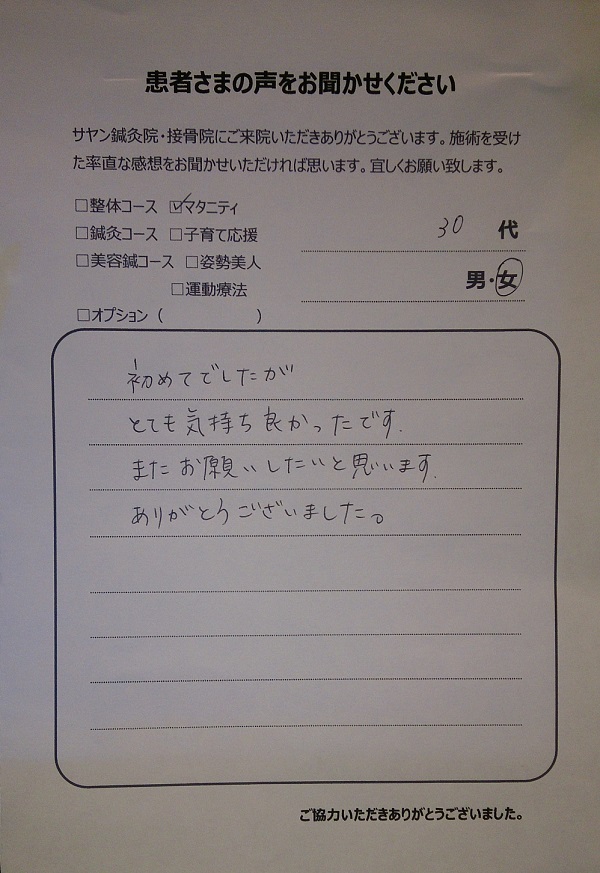 患者さまの声をお聞かせください
サヤン鍼灸院・接骨院にご来院いただきありがとうございます。施術を受け
た率直な感想をお聞かせいただければ思います。宜しくお願い致します。
□整体コース ☑マタニティ
□鍼灸コース □子育て応援
□美容鍼コース □姿勢美人
□運動療法
□オプション（ ）
30 代
男・女
初めてでしたが
とても気持ち良かったです.
またお願いしたいと思います.
ありがとうございました。
ご協力いただきありがとうございました。